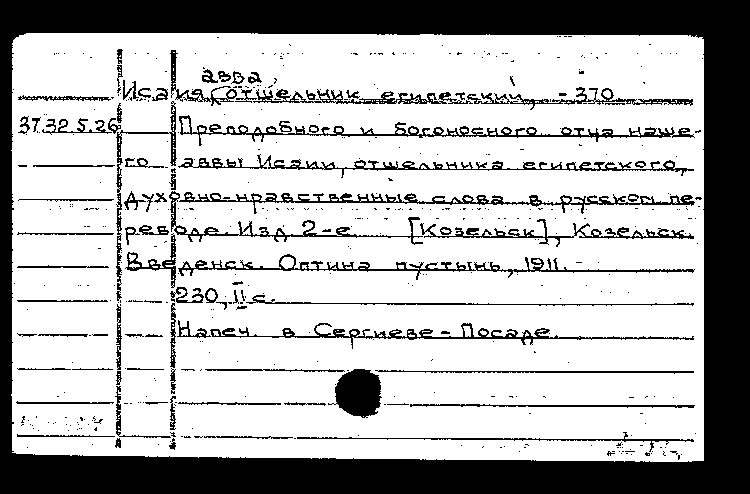 авва,
Исаия, отшельник египетский, -370.
3732.5.26 Преподобного и богоносного отца наше-
го аввы Исаии, отшельника египетского,
духовно-нравственные слова в русском пе-
реводе. Изд. 2-е. [Козельск], Козельск.
Введенск. Оптина пустынь, 1911. -
230, II с.
Напеч. в Сергиеве-Посаде.